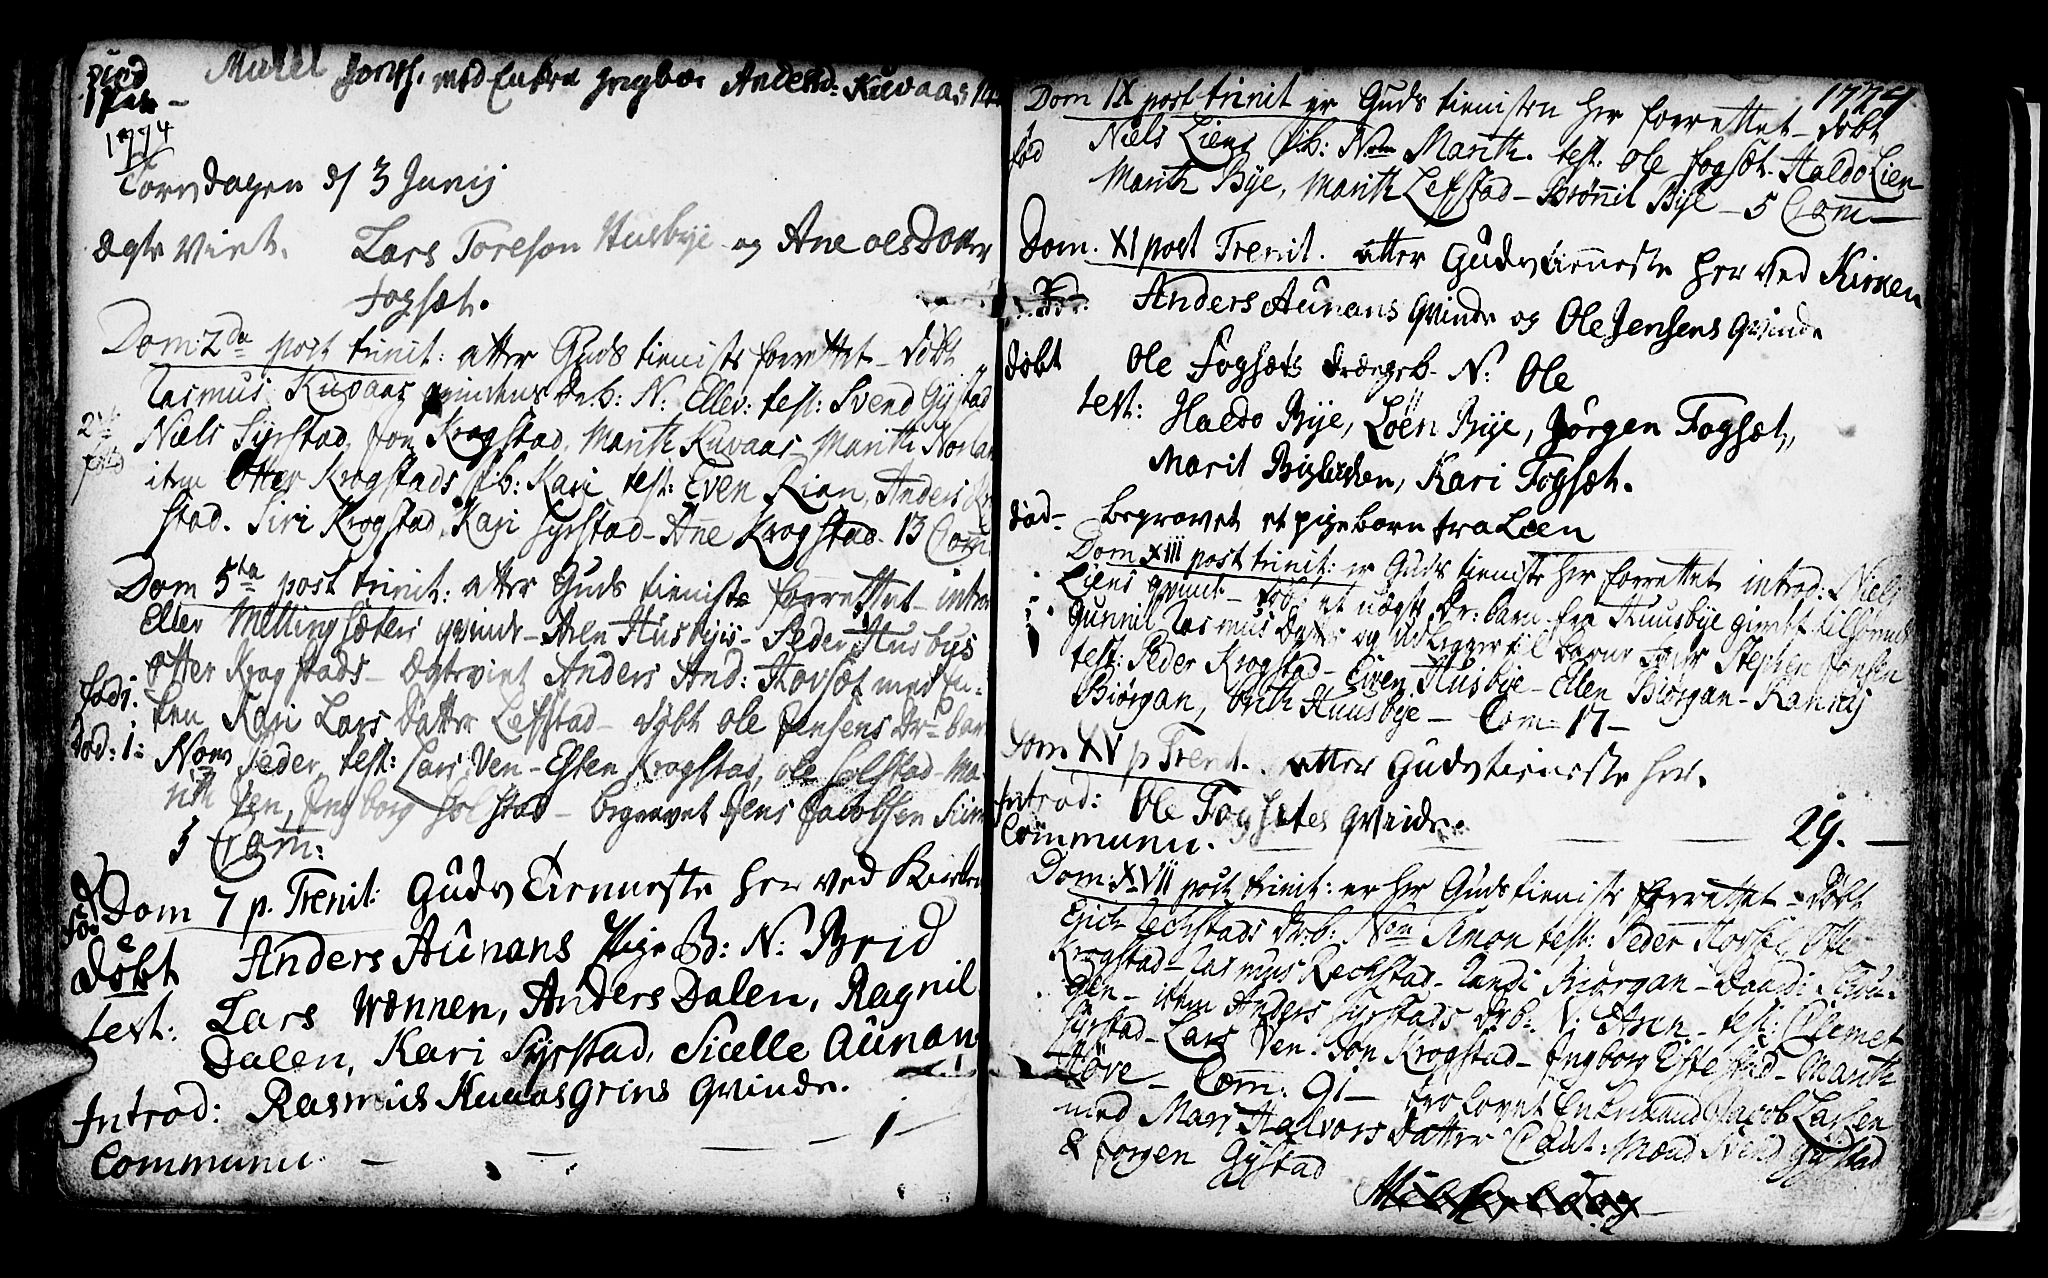 1 Par -
Jonss. med Enken Ingbor Andersd: Kuvaas
1774
Torsdagen d/ 3 Junij
Egte Viet. Lars Toreson Husbye og Ane olesDotter
Fogsæt.
Dom: 2da post trinit: atter Guds tieniste forrettet - døbt
Rasmus Kuvaas qvindens d.b: N: Ellev: test: Svend Gystad
Niels Syrstad, Jon Krogstad, Marith Kuvaas - Marith
item Otter Krogstads p.b: Kari, test: Even Rian, Anders
stad. Siri Krogstad, Kari Syrstad - Ane Krogstad. 13 Com
Dom 5ta post trinit: atter Guds tieniste forrettet - introd
Ellev Mellingsæters qvinde - Aren Husbyis - Peder Husbys
otter Krogstads - Egteviet Anders And: Hovsæt med En-
ken Kari Lars Datter Lefstad - døbt ole Jensens Dr- barn
død: 1: Nom Peder, test: Lars Ven - Esten Krogstad, ole Solstad - Ma-
rith Ven, Ingborg Solstad - begravet Jens Jacobsen
3 Com:
Dom 7 p. Trenit: Gudstienneste her ved Kirken
Døbt Anders Aunans Pige B: N: Brid
test: Lars Wænnen, Anders Dalen, Ragnil
Dalen, Kari Syrstad, Sicelle Aunan
Introd: Rasmus Kuaas Grins Qvinde.
Communi. - - - - 1 -
1774
Dom IX post trinit er Guds tienisten her forrettet - døbt
fød Niels Liens p.b: Nom Marith. test: Ole Fogsæt. Haldo Lien
Marith Bye, Marith Lefstad - Brønnil Bye - 5 Com -
Dom. XI post Trenit. atter Gudstienneste her ved Kirken
Anders Aunans Qvinde og Ole Jensens Qvinde
døbt Ole Fogsæts drængeb. N: Ole
test: Haldo Bye, Loen Bye, Jørgen Fogsæt,
Marit, Kari Fogsæt.
død - begravet et pigebarn fra Loen
Dom XIII post trinit: er Guds tieniste her forrettet introd: Niels
Liens qvinde - døbt et uægte Dr: barn fra Huusbye
Gunnil Rasmus Datter og udlegger til barne fader Stephen Jonsen
test: Peder Krogstad - Even Husbye - Ellen Biørgan - Rannej
Biørgan, Brith Huusbye - Com - 17 -
Dom. XV p Trenit. atter Gudstieneste her.
Introd: Ole Fogsetes Qvinde.
Communi. - - - 29. -
Dom: XVII post trinit: er her Guds tieniste forrettet - døbt
Erich Rechstads dr:b: Nom Simon test: Peder Hovsæt, Otte
Krogstad - Rasmus Rechstad - Randi Biørgan - Daardi Schou-
gen - item Anders Syrstads dr.b: N: Aren - test: Clemet
Syrstad - Lars Ven. Jon Krogstad - Ingborg Estestad - Marith
Høve - Com: 91 - trolovet Enkemand Jacob Larsen
med Mari Halvors datter Caut: Mænd Svend Gystad
& Jørgen Gystad